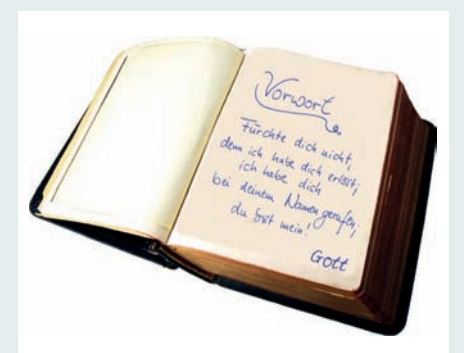 Vorwort
Fürchte dich nicht,
denn ich habe dich erlöst;
ich habe dich
bei deinem Namen gerufen;
du bist mein!
Gott